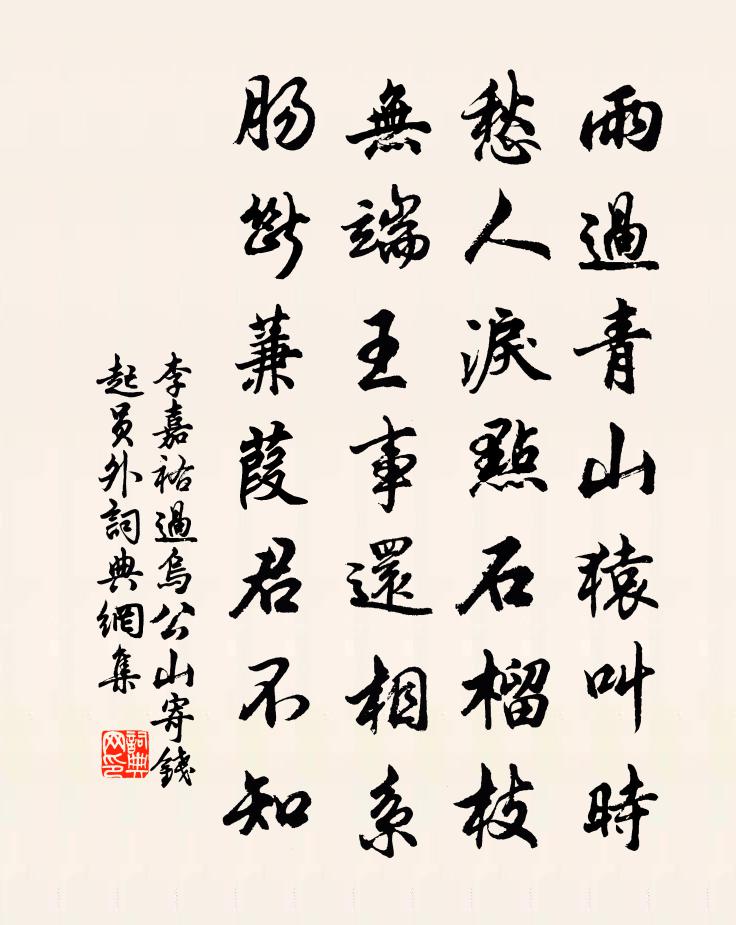 雨過青山猿叫時
愁人淚點石榴枝
無端王事還相系
腸斷蒹葭君不知
李嘉祐過烏公山寄錢
起員外詞典網集
詞典
网印